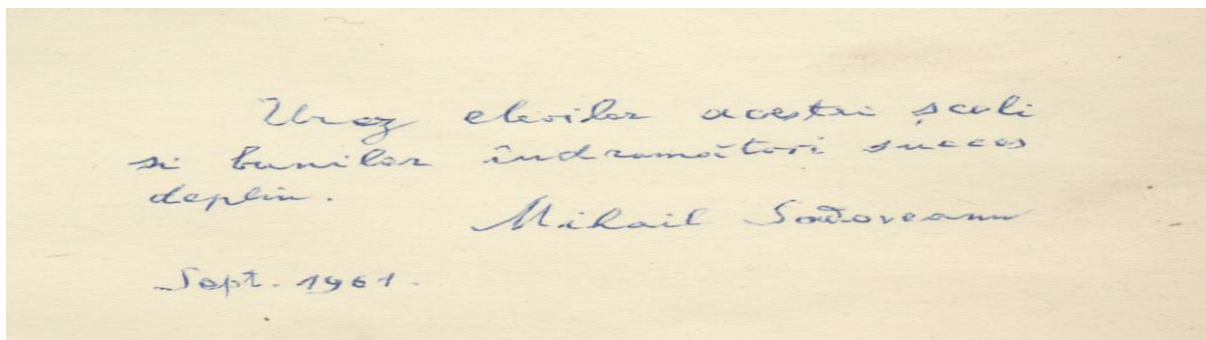 Urez elevilor acestei școli
si bunilor îndrumători succes
deplin.
Mihail Sadoveanu
Sept. 1961.